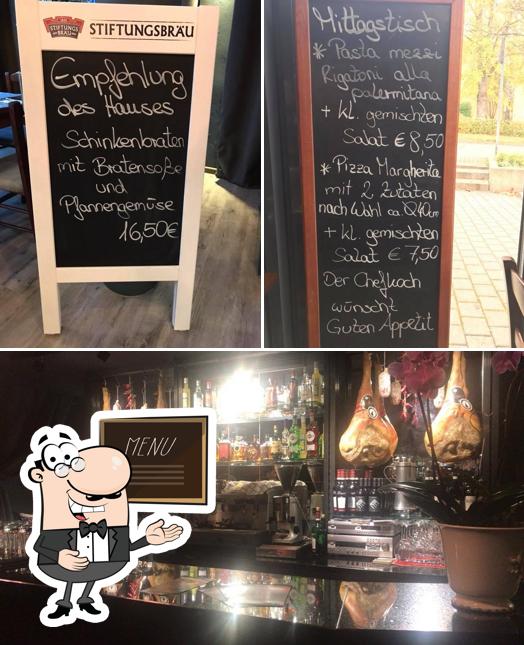 STIFTUNGSBRÄU
STIFTUNGSBRÄU
Empfehlung
des Hauses
Schinkenbraten
mit Bratensoße
und
Pfannengemüse
16,50€
Mittagstisch
* Pasta mezzi
Rigatoni alla
palermitana
+ kl. gemischten
Salat € 8,50
* Pizza Margherita
mit 2 Zutaten
nach Wahl ca. Ø 40cm
+ kl. gemischten
Salat € 7,50
Der Chefkoch
wünscht
Guten Appetit
MENU